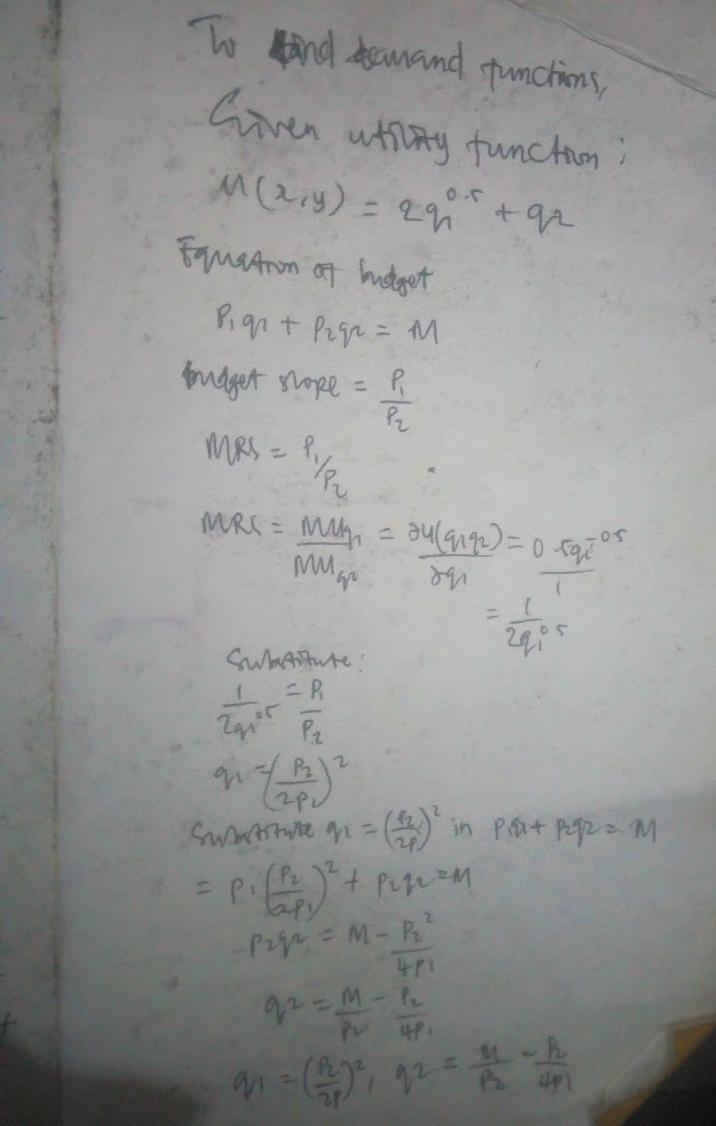 To find demand functions,
Given utility function;
U(x,y) = 2q₁^0.5 + q₂
Equation of budget
P₁q₁ + P₂q₂ = M
budget slope = P₁/P₂
MRS = P₁/P₂
MRS = MUq₁/MUq₂ = ∂U(q₁q₂)/∂q₁ = 0.5q₁^-0.5/1
= 1/2q₁^0.5
Substitute:
1/2q₁^0.5 = P₁/P₂
q₁ = (P₂/2P₁)²
Substitute q₁ = (P₂/2P₁)² in P₁q₁ + P₂q₂ = M
= P₁(P₂/2P₁)² + P₂q₂ = M
P₂q₂ = M - P₂²/4P₁
q₂ = M/P₂ - P₂/4P₁
q₁ = (P₂/2P)², q₂ = M/P₂ - P₂/4P₁